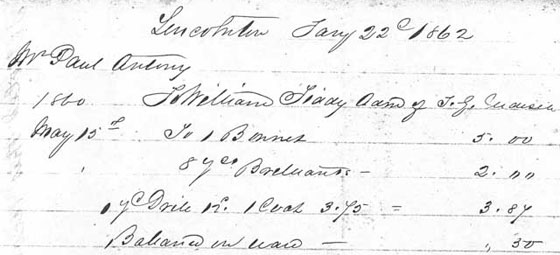 Lincolnton Jany 22d 1862
Mr Paul Antony
1860 To William Tiddy Adm of J. G.
May 15th To 1 Bonnet 5.00
8 yds Brilliants - 2.,,
1 yd Drill 12. 1 Coat 3.75 = 3.87
Balance on - ,, 30